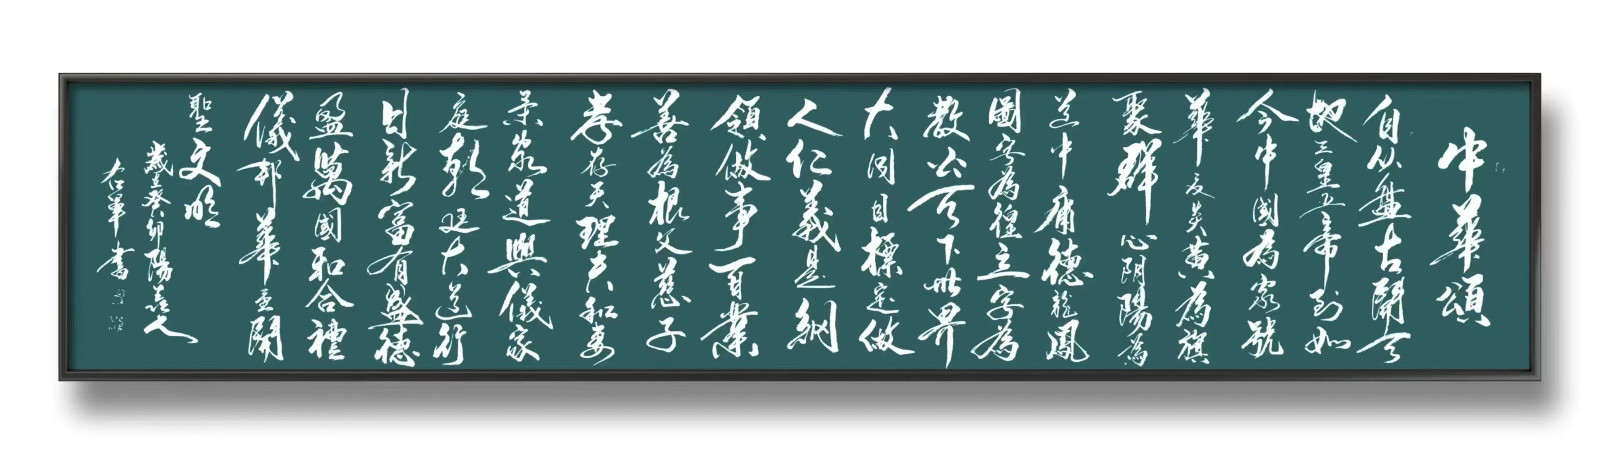 中華頌
自从盤古開天
地三皇五帝到如
今中國為家號
華夏炎黃為旗
聚群心陰陽為
道中庸德龍鳳
圖字為徑立字為
教公天下世界
大同目標定做
人仁義是綱
領做事百業
善為根父慈子
孝存天理夫和妻
柔家道興儀家
庭朝廷大道行
日新富有盛德
盈萬國和合禮
儀邦華壹開
聖文明
歲在癸卯陽春人
右軍書